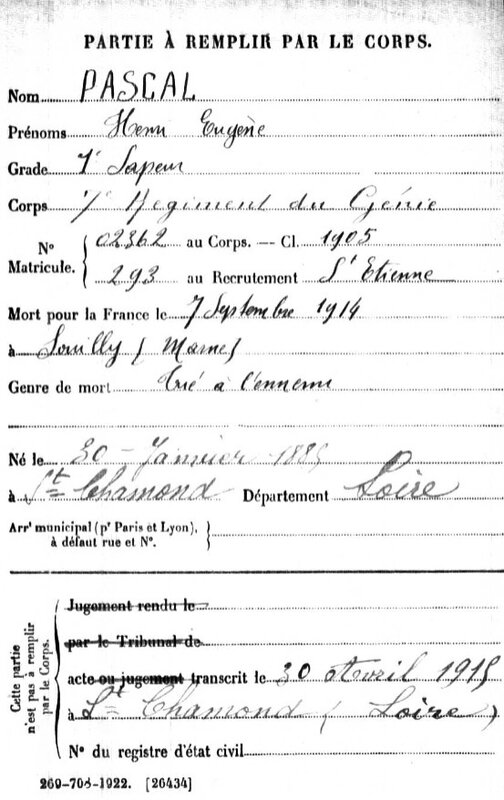 PARTIE À REMPLIR PAR LE CORPS.
Nom PASCAL
Prénoms Henri Eugène
Grade 1e Sapeur
Corps 7e Régiment du Génie
N° Matricule. { 02362 au Corps. — Cl. 1905
293 au Recrutement St Etienne
Mort pour la France le 7 Septembre 1914
à Souilly (Marne)
Genre de mort tué à l'ennemi
Né le 30 - Janvier 1885
à St Chamond Département Loire
Arrt municipal (pr Paris et Lyon),
à défaut rue et N°.
Cette partie n'est pas à remplir par le Corps.
Jugement rendu le
par le Tribunal de
acte ou jugement transcrit le 30 Avril 1915
à St Chamond (Loire)
N° du registre d'état civil
269-708-1922. [26434]